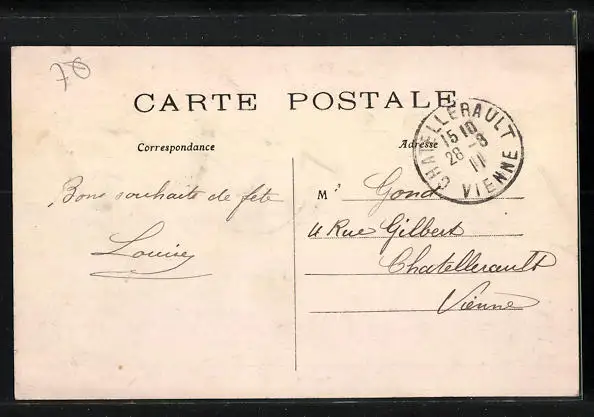 70
CARTE POSTALE
Correspondance
Adresse
CHATELLERAULT
15 10
28 - 8
11
VIENNE
Bons souhaits de fête
Louise
M Gond
4 Rue Gilbert
Chatellerault
Vienne